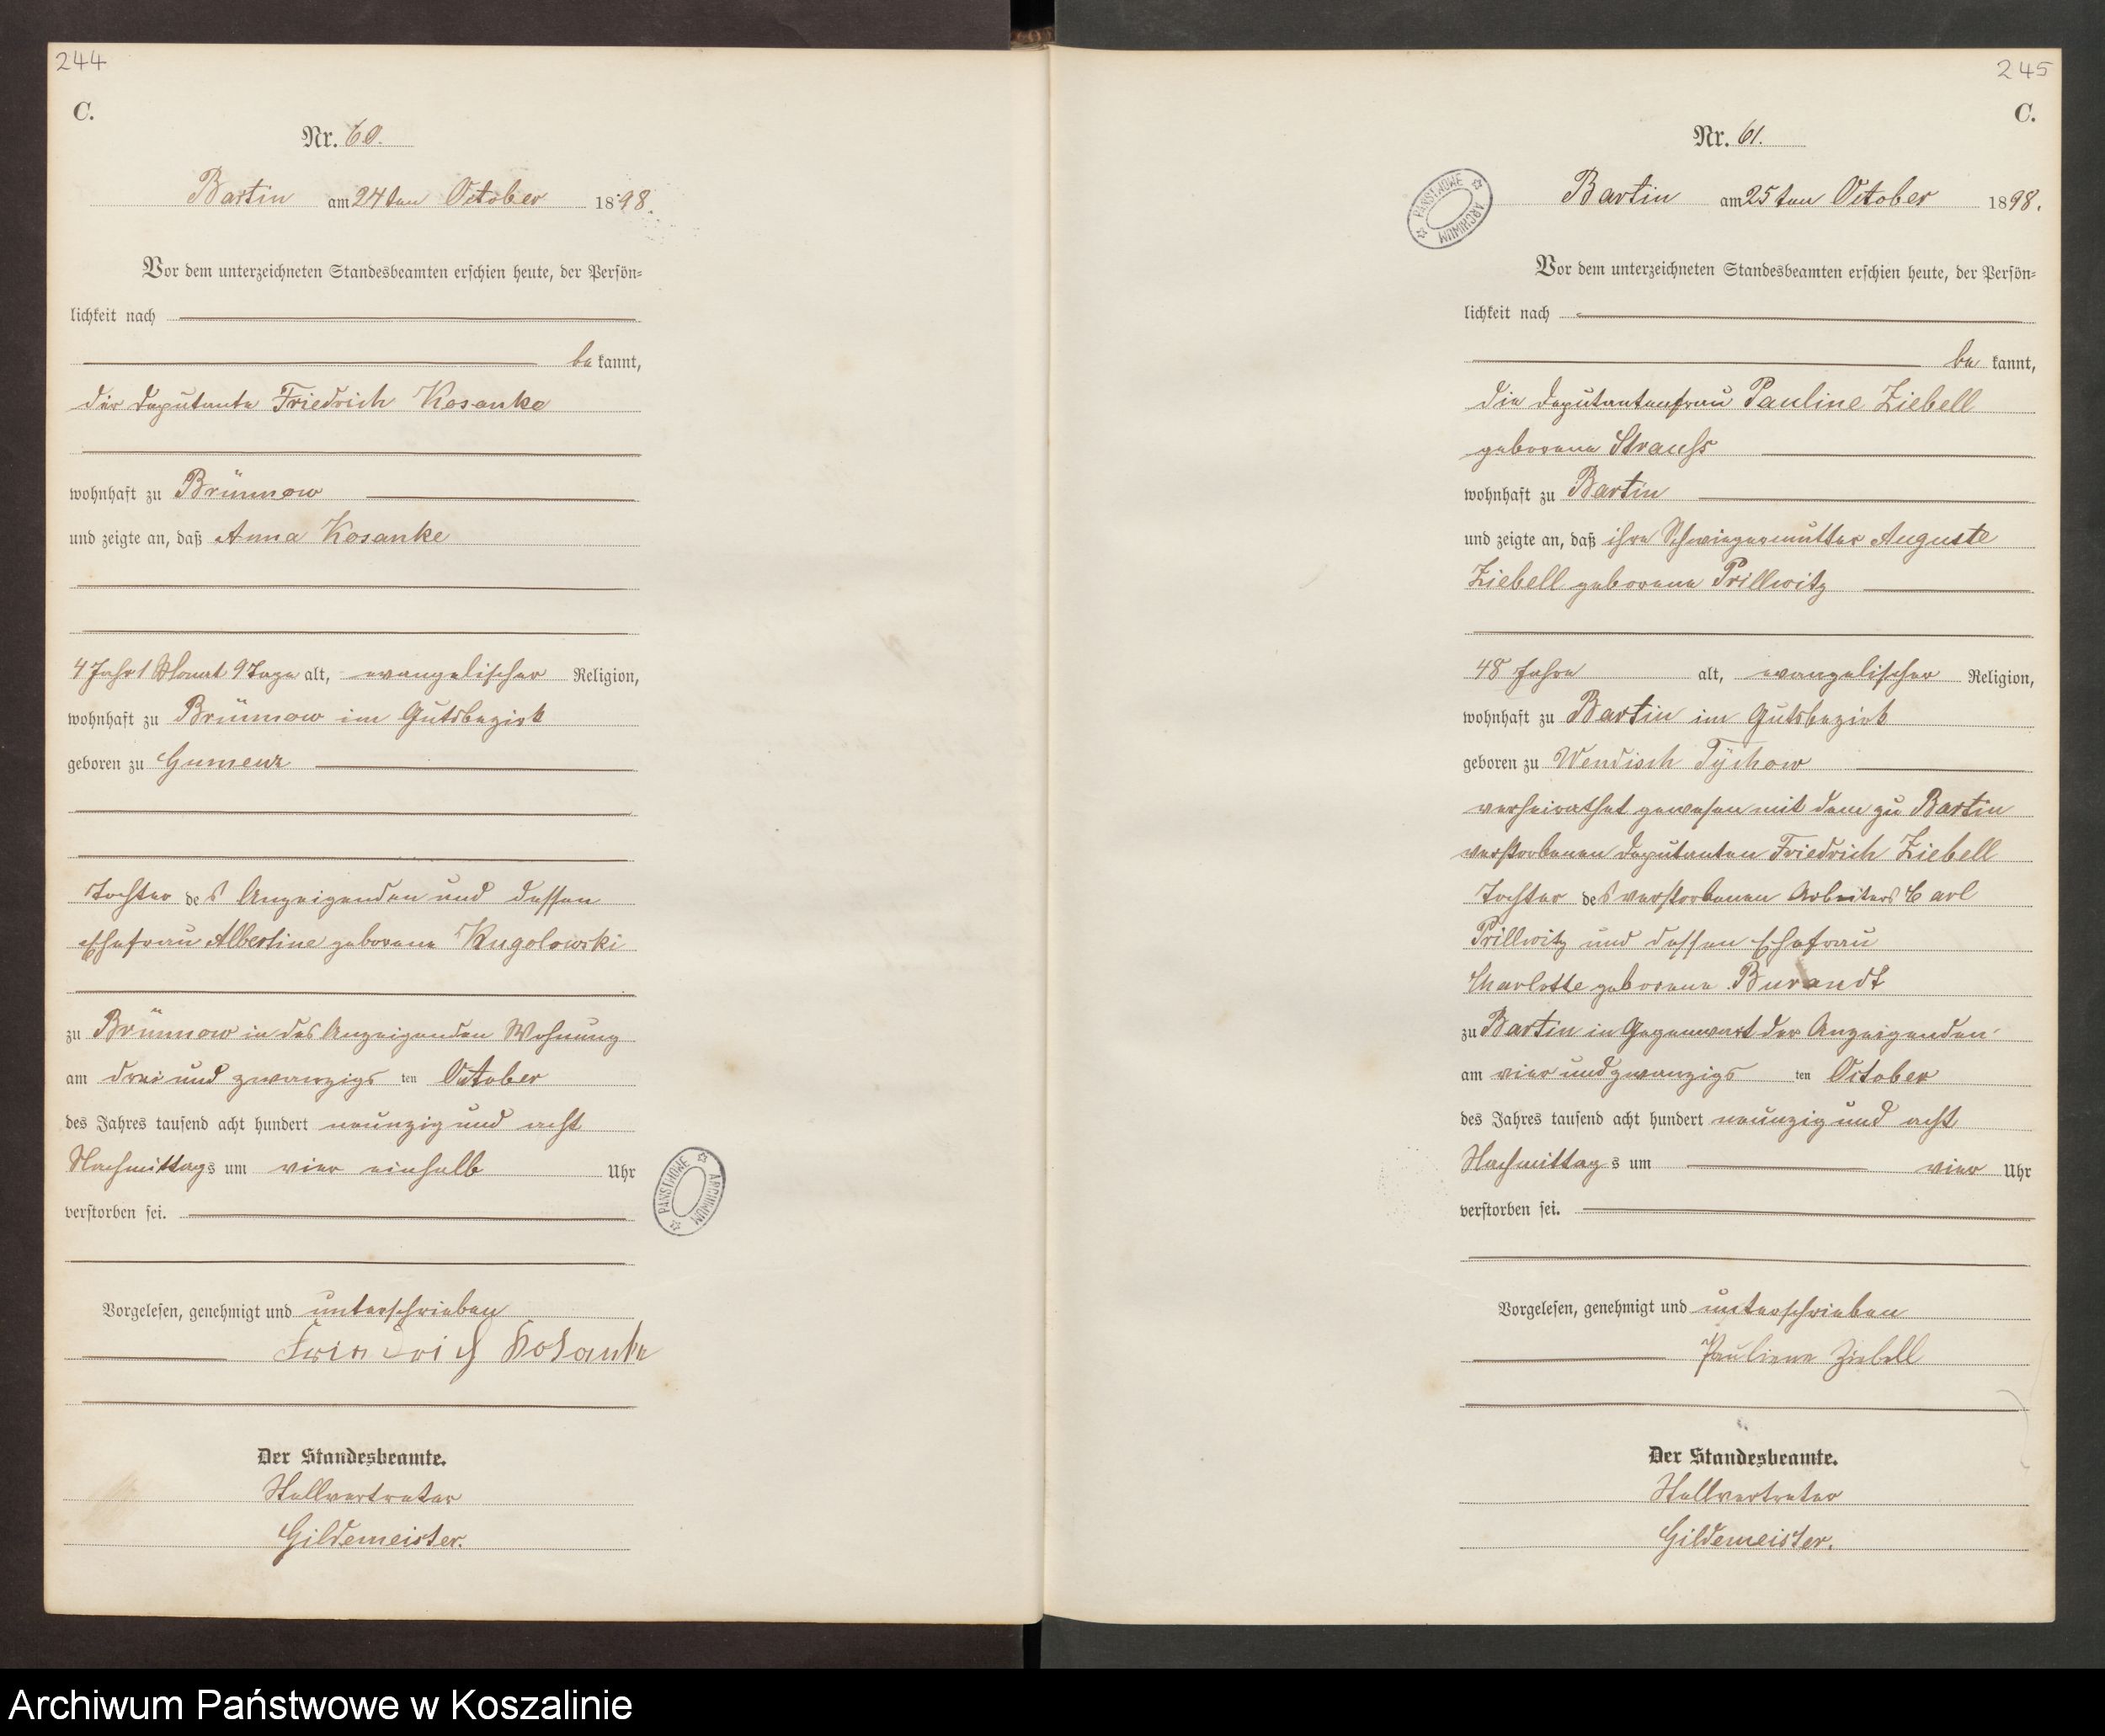 244
C.
Nr. 60.
Bartin am 24ten October 1898.
Vor dem unterzeichneten Standesbeamten erschien heute, der Persön-
lichkeit nach
be kannt,
der Deputante Friedrich Kosanke
wohnhaft zu Brünnow
und zeigte an, daß Anna Kosanke
4 Jahr 1 Monat 9 Tage alt, evangelischer Religion,
wohnhaft zu Brünnow im Gutsbezirk
geboren zu Gumenz
Tochter des Anzeigenden und dessen
Ehefrau Albertine geborene Kugolowski
zu Brünnow in des Anzeigenden Wohnung
am drei und zwanzigs ten October
des Jahres tausend acht hundert neunzig und acht
Nachmittags um vier einhalb Uhr
verstorben sei.
Vorgelesen, genehmigt und unterschrieben
Friedrich Kosanke
Der Standesbeamte.
Stellvertreter
Gildemeister.
PAŃSTWOWE ARCHIWUM
245
C.
Nr. 61.
Bartin am 25ten October 1898.
PAŃSTWOWE ARCHIWUM
Vor dem unterzeichneten Standesbeamten erschien heute, der Persön-
lichkeit nach
be kannt,
die Deputantenfrau Pauline Ziebell
geborene Strauss
wohnhaft zu Bartin
und zeigte an, daß ihre Schwiegermutter Auguste
Ziebell geborene Prillwitz
48 Jahre alt, evangelischer Religion,
wohnhaft zu Bartin im Gutsbezirk
geboren zu Wendisch Tychow
verheirathet gewesen mit dem zu Bartin
verstorbenen Deputanten Friedrich Ziebell
Tochter des verstorbenen Arbeiters Carl
Prillwitz und dessen Ehefrau
Charlotte geborene Burandt
zu Bartin in Gegenwart der Anzeigenden
am vier und zwanzigs ten October
des Jahres tausend acht hundert neunzig und acht
Nachmittags um vier Uhr
verstorben sei.
Vorgelesen, genehmigt und unterschrieben
Pauliene Ziebell
Der Standesbeamte.
Stellvertreter
Gildemeister.
Archiwum Państwowe w Koszalinie